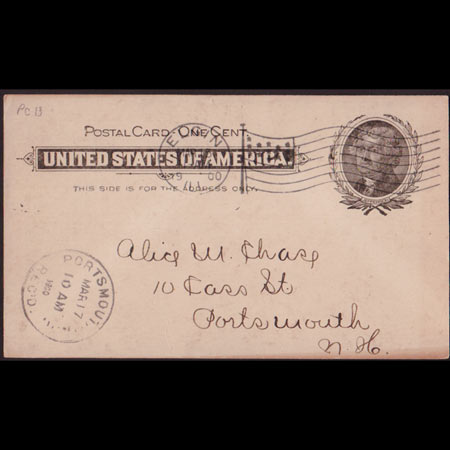 PC 13
POSTAL CARD - ONE CENT.
UNITED STATES OF AMERICA.
THIS SIDE IS FOR THE ADDRESS ONLY.
Alice M. Chase
10 Cass St
Portsmouth
N. H.
PORTSMOU
MAR 17
10 AM
1900
REC'D.